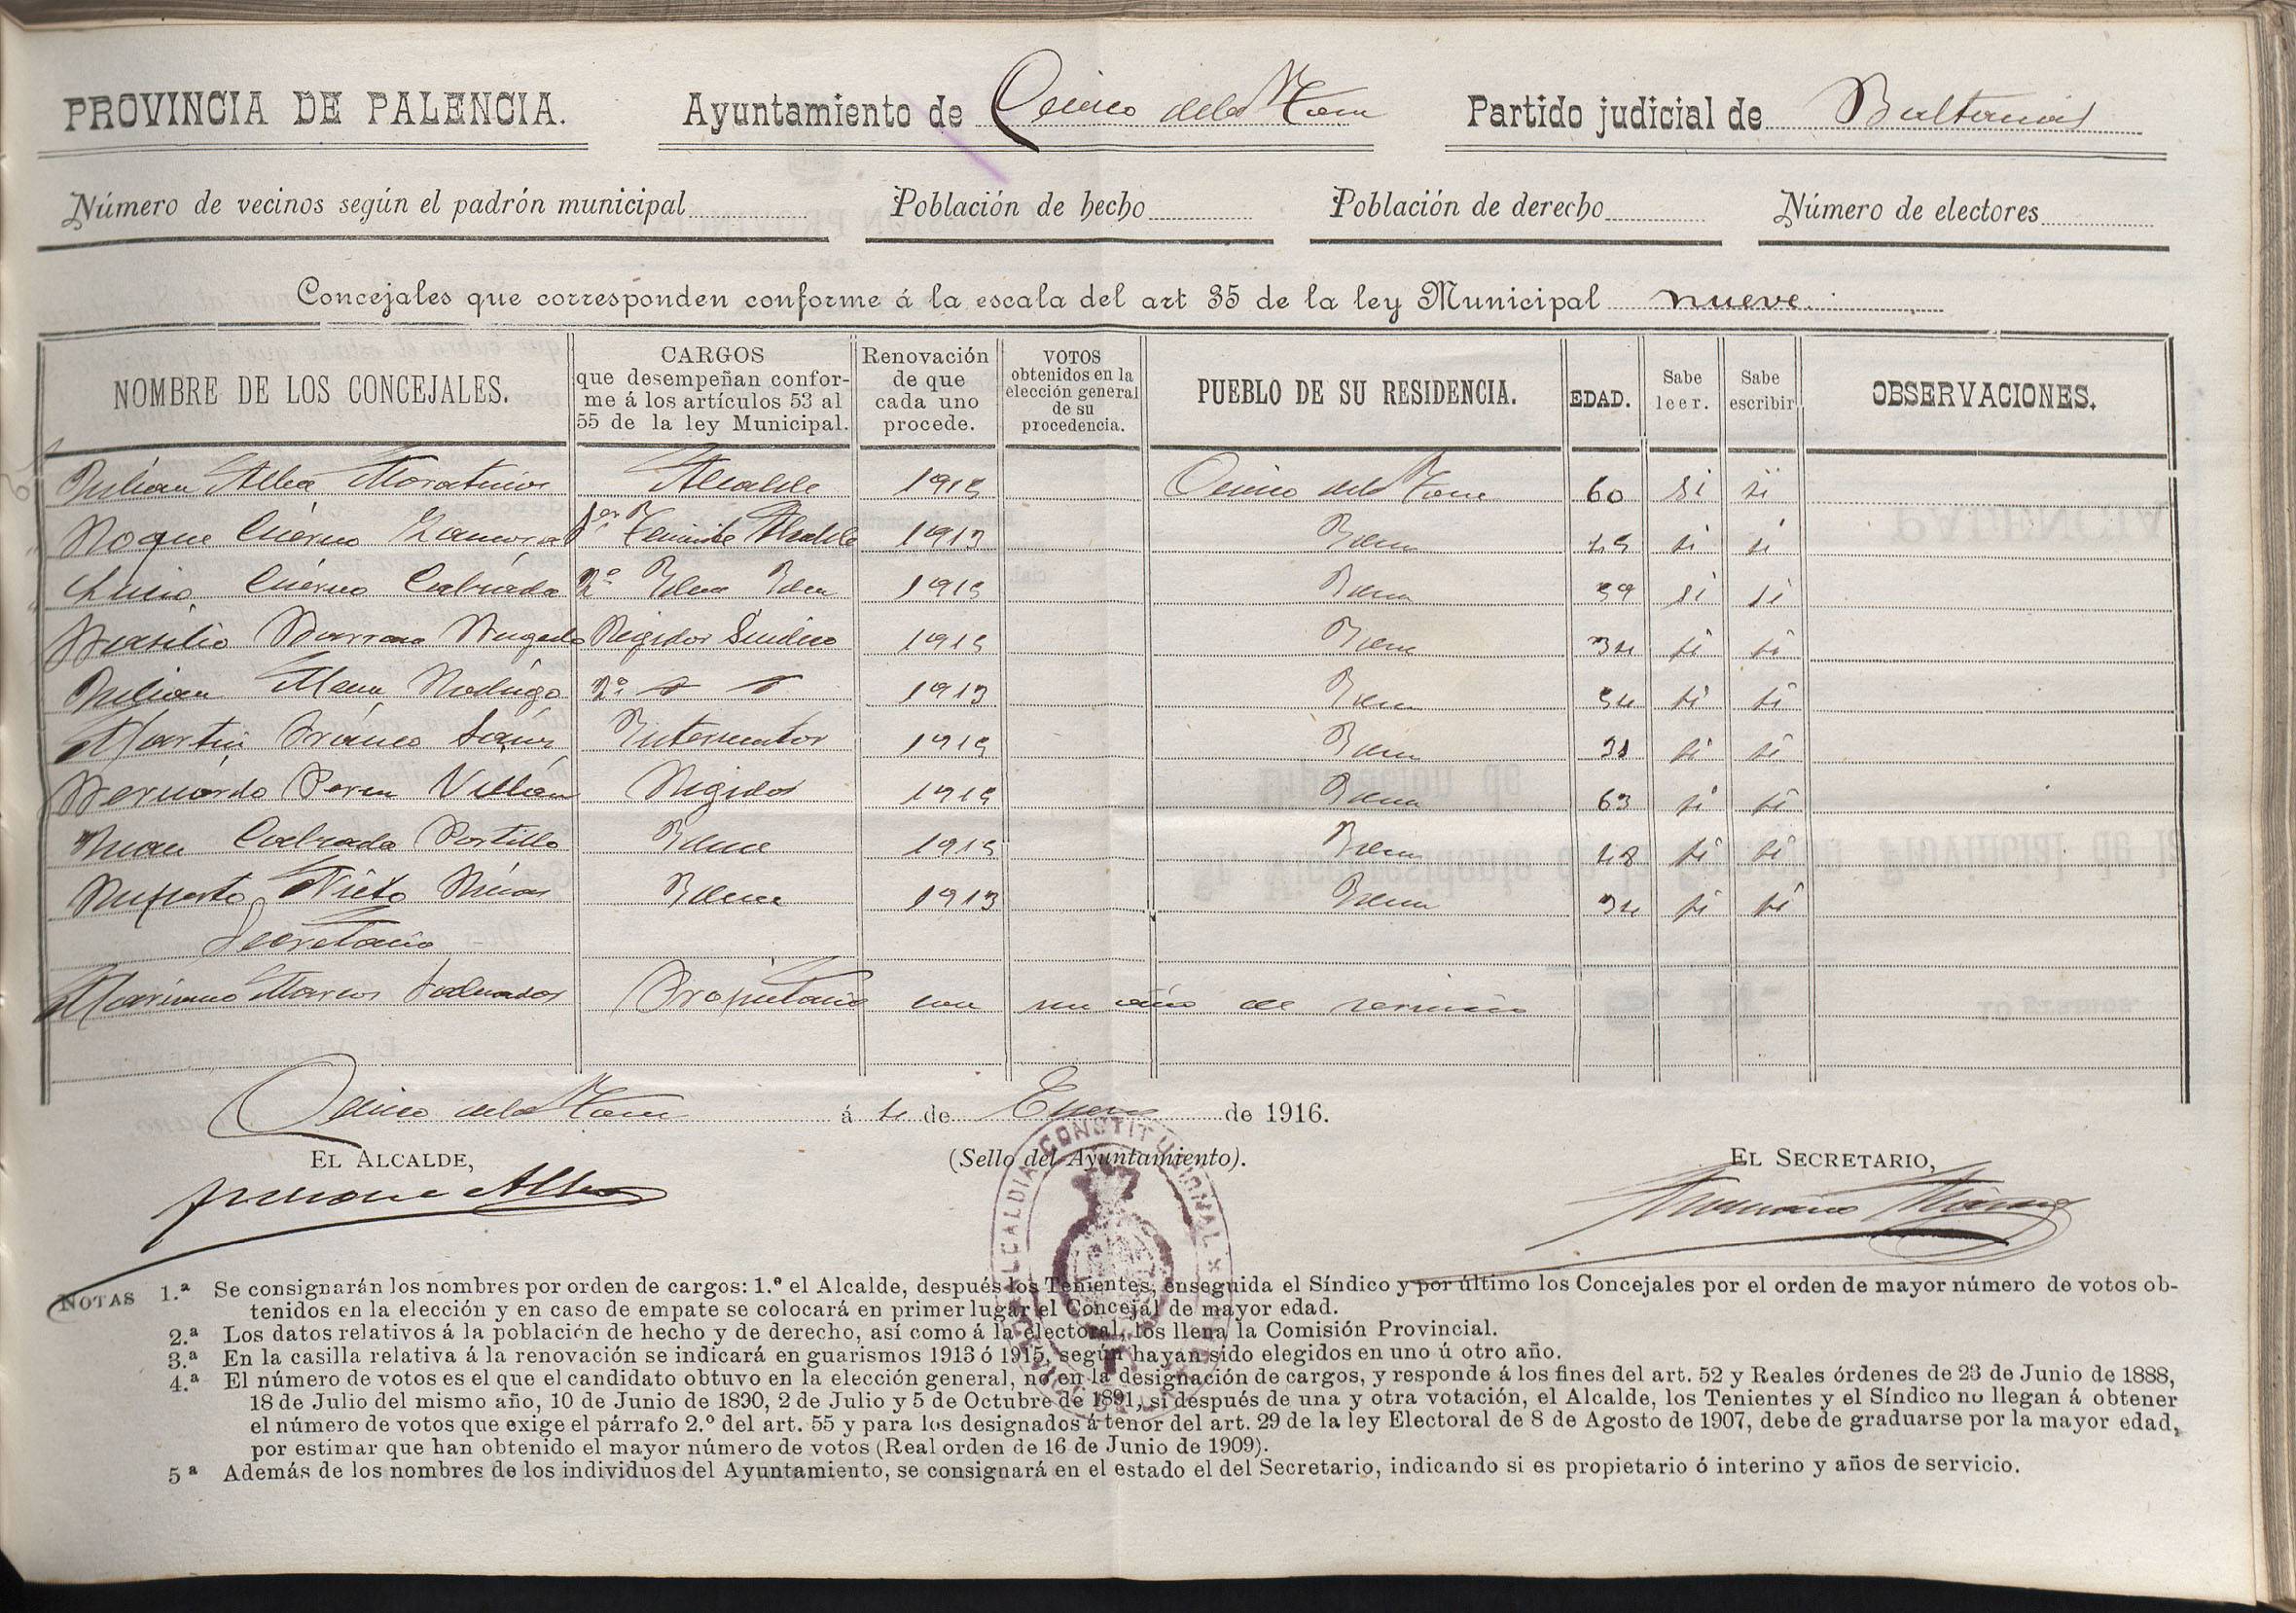 PROVINCIA DE PALENCIA. Ayuntamiento de Cevico de la Torre Partido judicial de Baltanás
Número de vecinos según el padrón municipal Población de hecho Población de derecho Número de electores
Concejales que corresponden conforme á la escala del art 35 de la ley Municipal nueve.
NOMBRE DE LOS CONCEJALES. CARGOS que desempeñan conforme á los artículos 53 al 55 de la ley Municipal. Renovación de que cada uno procede. VOTOS obtenidos en la elección general de su procedencia. PUEBLO DE SU RESIDENCIA. EDAD. Sabe leer. Sabe escribir OBSERVACIONES.
Julian Alba Moratinos Alcalde 1915 Cevico de la Torre 60 si si
Roque Cuerno Zamora 1er Teniente Alcalde 1913 Idem si si
Lucio Cuerno Calzada 2º Idem Idem 1915 Idem 39 si si
Basilio Barroso Regidor Sindico 1915 Idem 34 si si
Julian Mena Rodrigo 2º 1913 Idem 54 si si
Martin Franco Interventor 1915 Idem 31 si si
Bernardo Perez Villán Regidor 1915 Idem 63 si si
Juan Calzada Portillo Idem 1915 Idem 48 si si
Ruperto Nieto Idem 1913 Idem 34 si si
Secretario
Mariano Marcos Propietario con un año de servicio
Cevico de la Torre á 4 de Enero de 1916.
EL ALCALDE, (Sello del Ayuntamiento). EL SECRETARIO,
Alba
ALCALDIA CONSTITUCIONAL
NOTAS 1.ª Se consignarán los nombres por orden de cargos: 1.º el Alcalde, después los Tenientes, enseguida el Síndico y por último los Concejales por el orden de mayor número de votos ob-
tenidos en la elección y en caso de empate se colocará en primer lugar el Concejal de mayor edad.
2.ª Los datos relativos á la población de hecho y de derecho, así como á la electoral, los llena la Comisión Provincial.
3.ª En la casilla relativa á la renovación se indicará en guarismos 1913 ó 1915, según hayan sido elegidos en uno ú otro año.
4.ª El número de votos es el que el candidato obtuvo en la elección general, no en la designación de cargos, y responde á los fines del art. 52 y Reales órdenes de 23 de Junio de 1888,
18 de Julio del mismo año, 10 de Junio de 1890, 2 de Julio y 5 de Octubre de 1891, si después de una y otra votación, el Alcalde, los Tenientes y el Síndico no llegan á obtener
el número de votos que exige el párrafo 2.º del art. 55 y para los designados á tenor del art. 29 de la ley Electoral de 8 de Agosto de 1907, debe de graduarse por la mayor edad,
por estimar que han obtenido el mayor número de votos (Real orden de 16 de Junio de 1909).
5ª Además de los nombres de los individuos del Ayuntamiento, se consignará en el estado el del Secretario, indicando si es propietario ó interino y años de servicio.